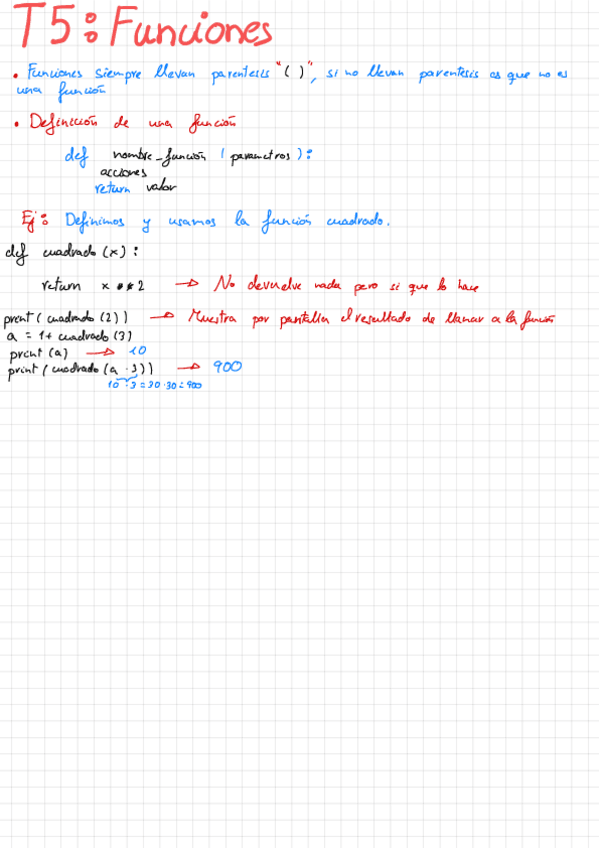 T5: Funciones
• Funciones siempre llevan parentesis "( )", si no llevan parentesis es que no es
una función
• Definición de una función
def nombre_función (parametros):
acciones
return valor
Ej: Definimos y usamos la función cuadrado.
def cuadrado (x):
return x ** 2 → No devuelve nada pero si que lo hace
print (cuadrado (2)) → Muestra por pantalla el resultado de llamar a la función
a = 1 + cuadrado (3)
print (a) → 10
print (cuadrado (a · 3)) → 900
10 · 3 = 30 · 30 = 900